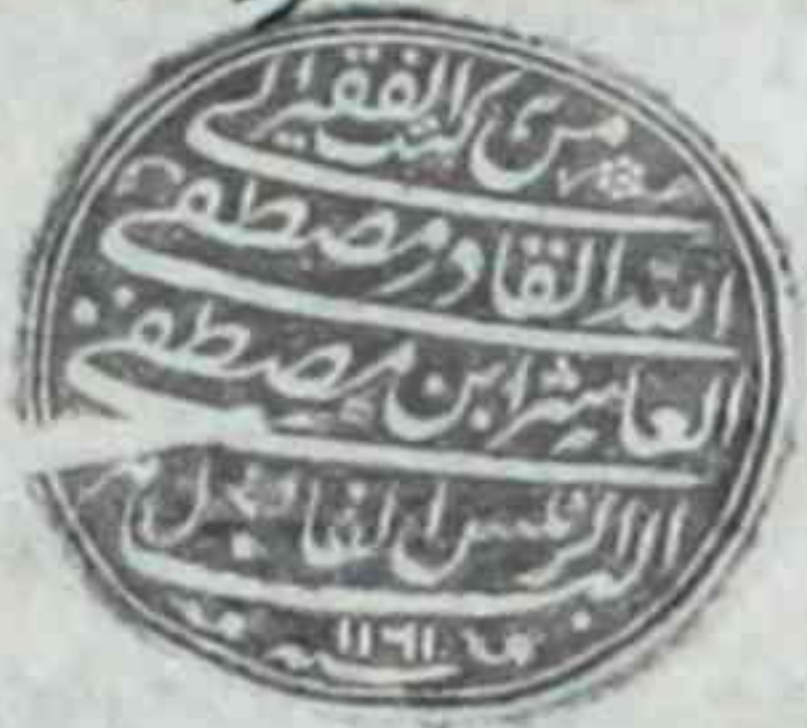 من كتب الفقير الى
الله القادر مصطفى
العاشر ابن مصطفى
الرئيس الفاضل
سنه ١١٩١